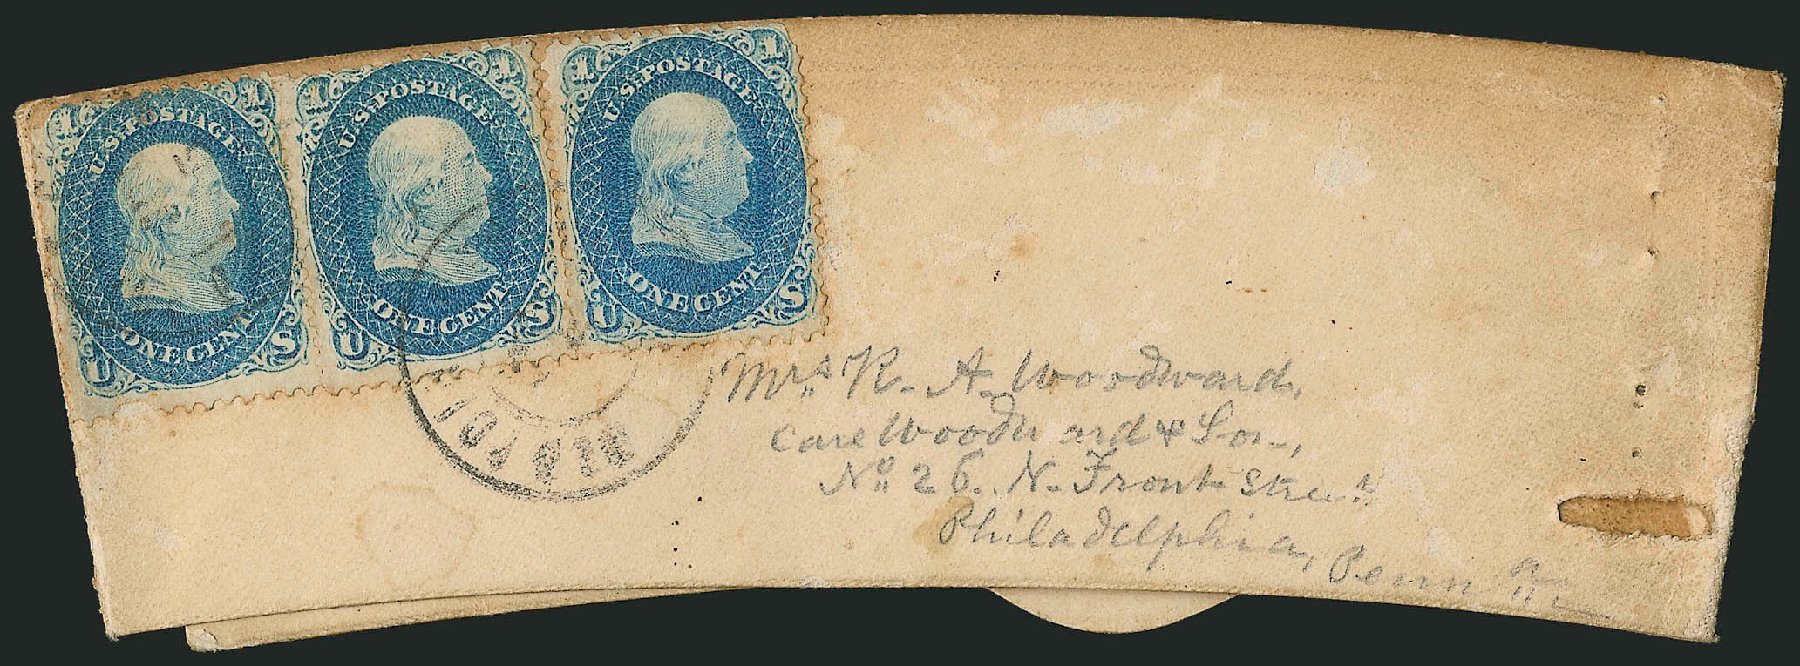 1 1
U.S. POSTAGE
ONE CENT
U S
1 1
U.S. POSTAGE
ONE CENT
U S
1 1
U.S. POSTAGE
ONE CENT
U S
Mrs. R. A. Woodward,
Care Woodward & Son,
No. 26. N. Front Street
Philadelphia, Penn